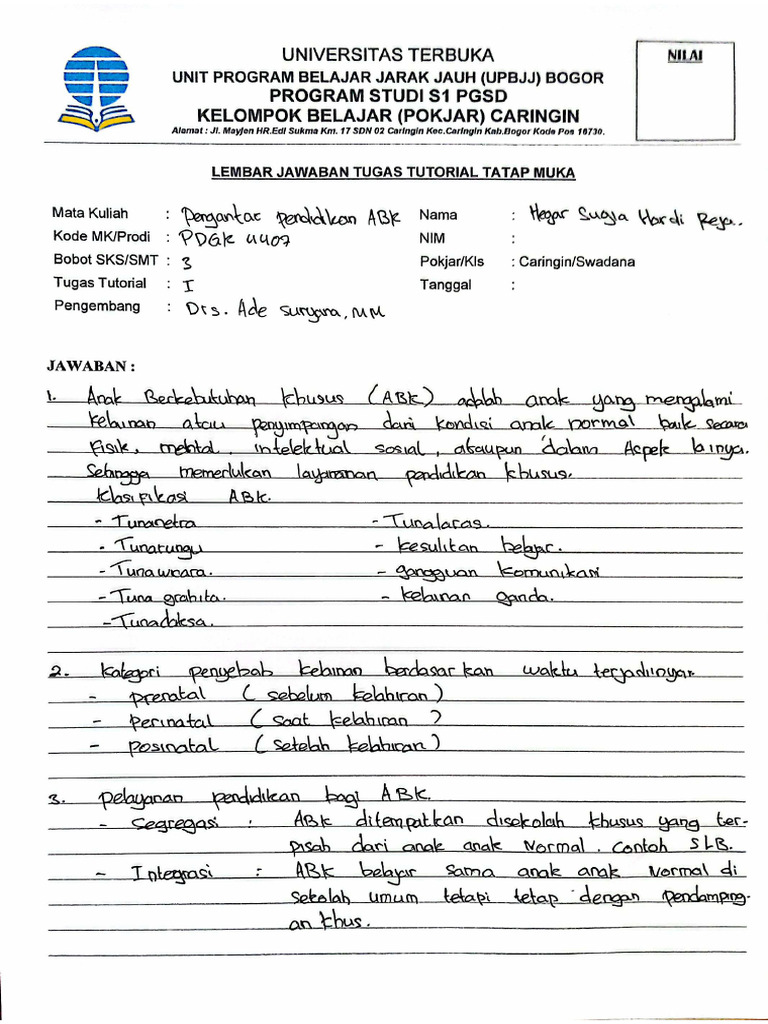 UNIVERSITAS TERBUKA
UNIT PROGRAM BELAJAR JARAK JAUH (UPBJJ) BOGOR
PROGRAM STUDI S1 PGSD
KELOMPOK BELAJAR (POKJAR) CARINGIN
Alamat : Jl. Mayjen HR.Edi Sukma Km. 17 SDN 02 Caringin Kec.Caringin Kab.Bogor Kode Pos 16730.
NILAI
LEMBAR JAWABAN TUGAS TUTORIAL TATAP MUKA
Mata Kuliah : Pengantar Pendidikan ABK
Kode MK/Prodi : PDGK 4407
Bobot SKS/SMT : 3
Tugas Tutorial : I
Pengembang : Drs. Ade Suryana, MM
Nama : Hegar Surya Hardi Reja.
NIM :
Pokjar/Kls : Caringin/Swadana
Tanggal :
JAWABAN :
1. Anak Berkebutuhan khusus (ABK) adalah anak yang mengalami
kelainan atau penyimpangan dari kondisi anak normal baik secara
Fisik, mental, intelektual sosial, ataupun dalam Aspek lainya.
Sehingga memerlukan layanan pendidikan khusus.
Klasifikasi ABK.
- Tunanetra
- Tunarungu
- Tunawicara.
- Tuna grahita.
- Tunadaksa.
- Tunalaras.
- kesulitan belajar.
- gangguan komunikasi
- kelainan ganda.
2. Kategori penyebab kelainan berdasarkan waktu terjadinya
- prenatal (sebelum kelahiran)
- perinatal (saat kelahiran)
- posinatal (setelah kelahiran)
3. pelayanan pendidikan bagi ABK.
- Segregasi : ABK ditempatkan disekolah khusus yang ter-
pisah dari anak anak Normal. Contoh SLB.
- Integrasi : ABK belajar sama anak anak Normal di
sekolah umum tetapi tetap dengan Pendamping-
an khus.